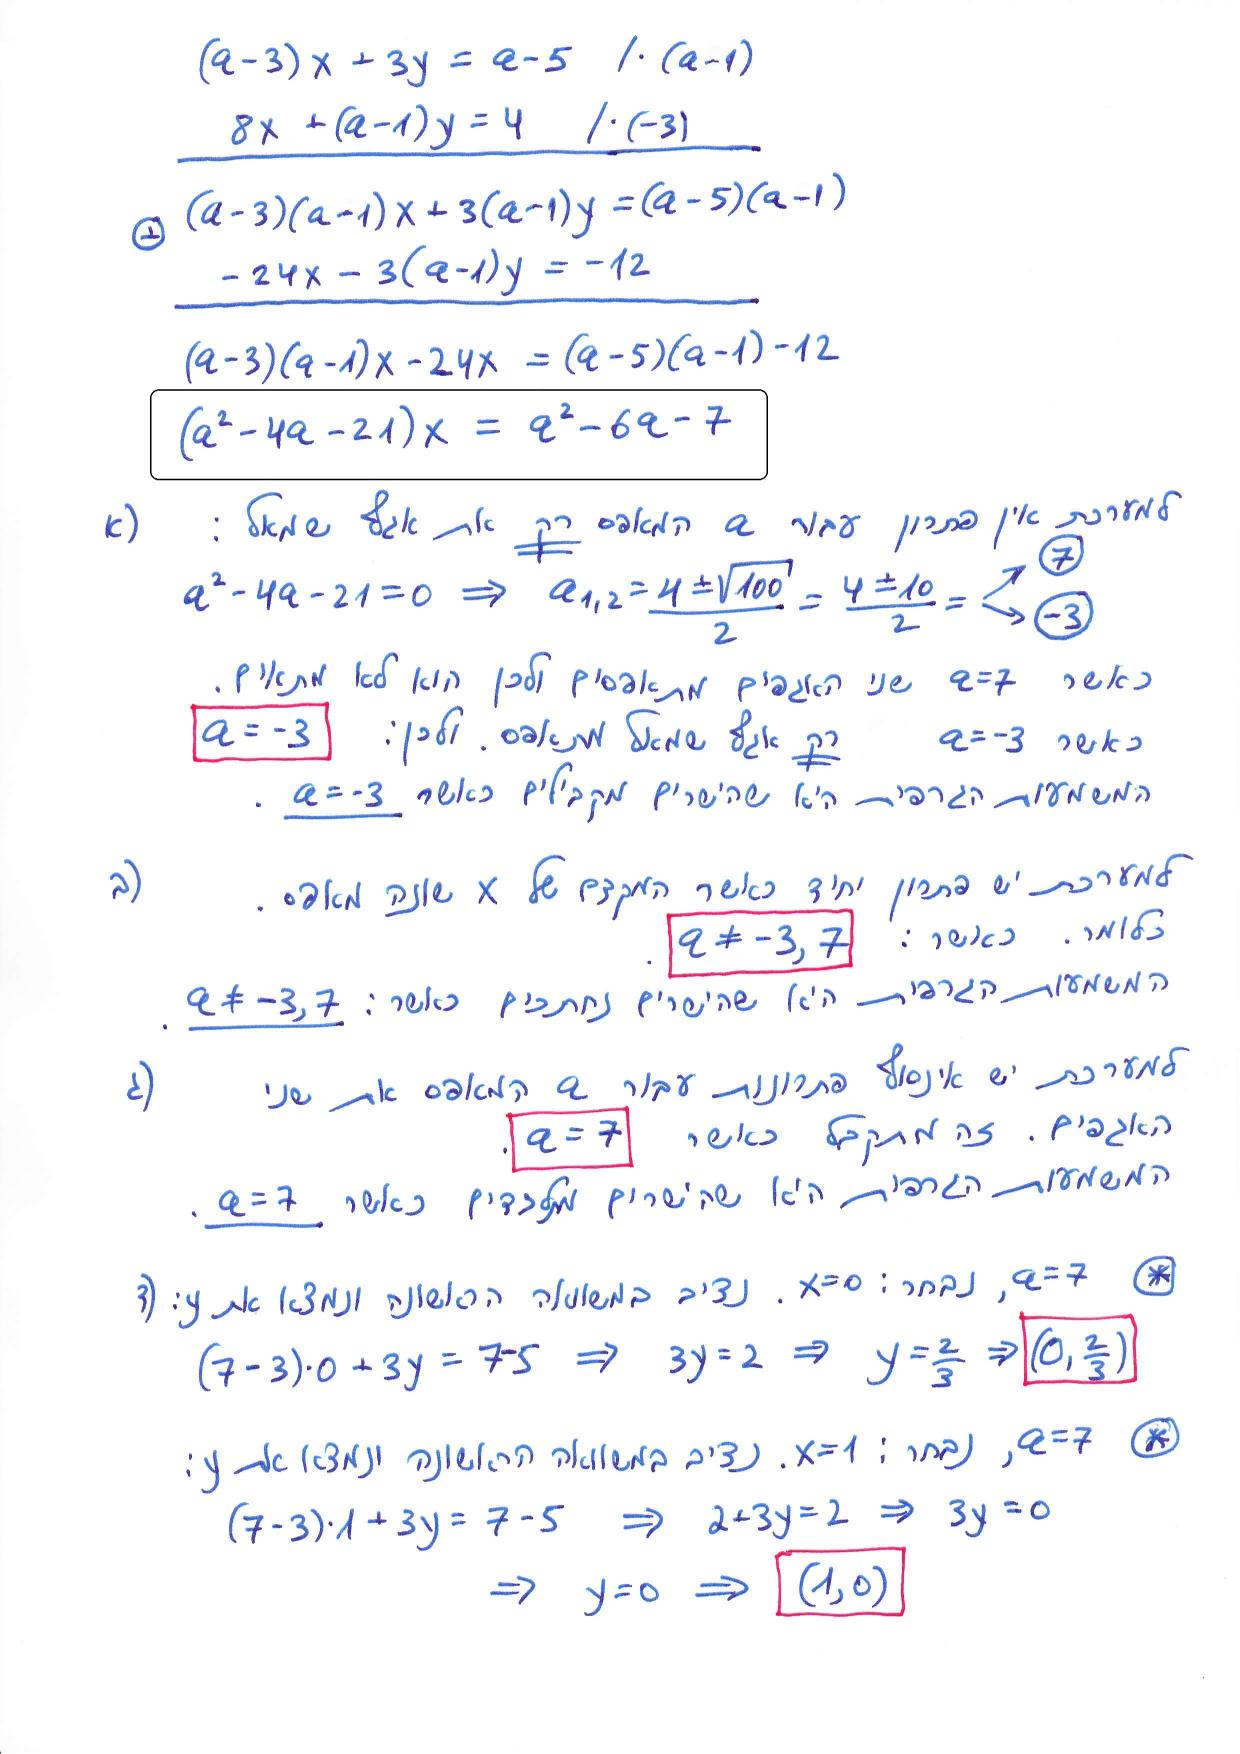 (a-3)x + 3y = a-5 /·(a-1)
8x + (a-1)y = 4 /·(-3)
⊕ (a-3)(a-1)x + 3(a-1)y = (a-5)(a-1)
-24x - 3(a-1)y = -12
(a-3)(a-1)x - 24x = (a-5)(a-1) - 12
(a² - 4a - 21)x = a² - 6a - 7
א) למערכת אין פתרון עבור a המאפס רק את אגף שמאל :
a² - 4a - 21 = 0 ⇒ a₁,₂ = (4 ± √100)/2 = (4 ± 10)/2 = 7, -3
כאשר a=7 שני האגפים מתאפסים ולכן הוא לא מתאים.
כאשר a=-3 רק אגף שמאל מתאפס. ולכן: a = -3
המשמעות הגרפית היא שהישרים מקבילים כאשר a=-3 .
ב) למערכת יש פתרון יחיד כאשר המקדם של x שונה מאפס .
כלומר. כאשר : a ≠ -3, 7 .
המשמעות הגרפית היא שהישרים נחתכים כאשר : a ≠ -3, 7 .
ג) למערכת יש אינסוף פתרונות עבור a המאפס את שני
האגפים . זה מתקבל כאשר a = 7 .
המשמעות הגרפית היא שהישרים מתלכדים כאשר a=7 .
ד) * a=7, נבחר : x=0. נציב במשוואה הראשונה ונמצא את y:
(7-3)·0 + 3y = 7-5 ⇒ 3y = 2 ⇒ y = 2/3 ⇒ (0, 2/3)
* a=7, נבחר : x=1. נציב במשוואה הראשונה ונמצא את y:
(7-3)·1 + 3y = 7-5 ⇒ 2+3y=2 ⇒ 3y = 0
⇒ y=0 ⇒ (1,0)